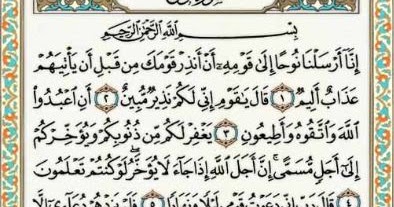 بِسْمِ ٱللَّهِ ٱلرَّحْمَٰنِ ٱلرَّحِيمِ
إِنَّآ أَرْسَلْنَا نُوحًا إِلَىٰ قَوْمِهِۦٓ أَنْ أَنذِرْ قَوْمَكَ مِن قَبْلِ أَن يَأْتِيَهُمْ
عَذَابٌ أَلِيمٌ ١ قَالَ يَٰقَوْمِ إِنِّى لَكُمْ نَذِيرٌ مُّبِينٌ ٢ أَنِ ٱعْبُدُوا۟
ٱللَّهَ وَٱتَّقُوهُ وَأَطِيعُونِ ٣ يَغْفِرْ لَكُم مِّن ذُنُوبِكُمْ وَيُؤَخِّرْكُمْ
إِلَىٰٓ أَجَلٍ مُّسَمًّى ۚ إِنَّ أَجَلَ ٱللَّهِ إِذَا جَآءَ لَا يُؤَخَّرُ ۖ لَوْ كُنتُمْ تَعْلَمُونَ
٤ قَالَ رَبِّ إِنِّى دَعَوْتُ قَوْمِى لَيْلًا وَنَهَارًا ٥ فَلَمْ يَزِدْهُمْ دُعَآءِىٓ إِلَّا